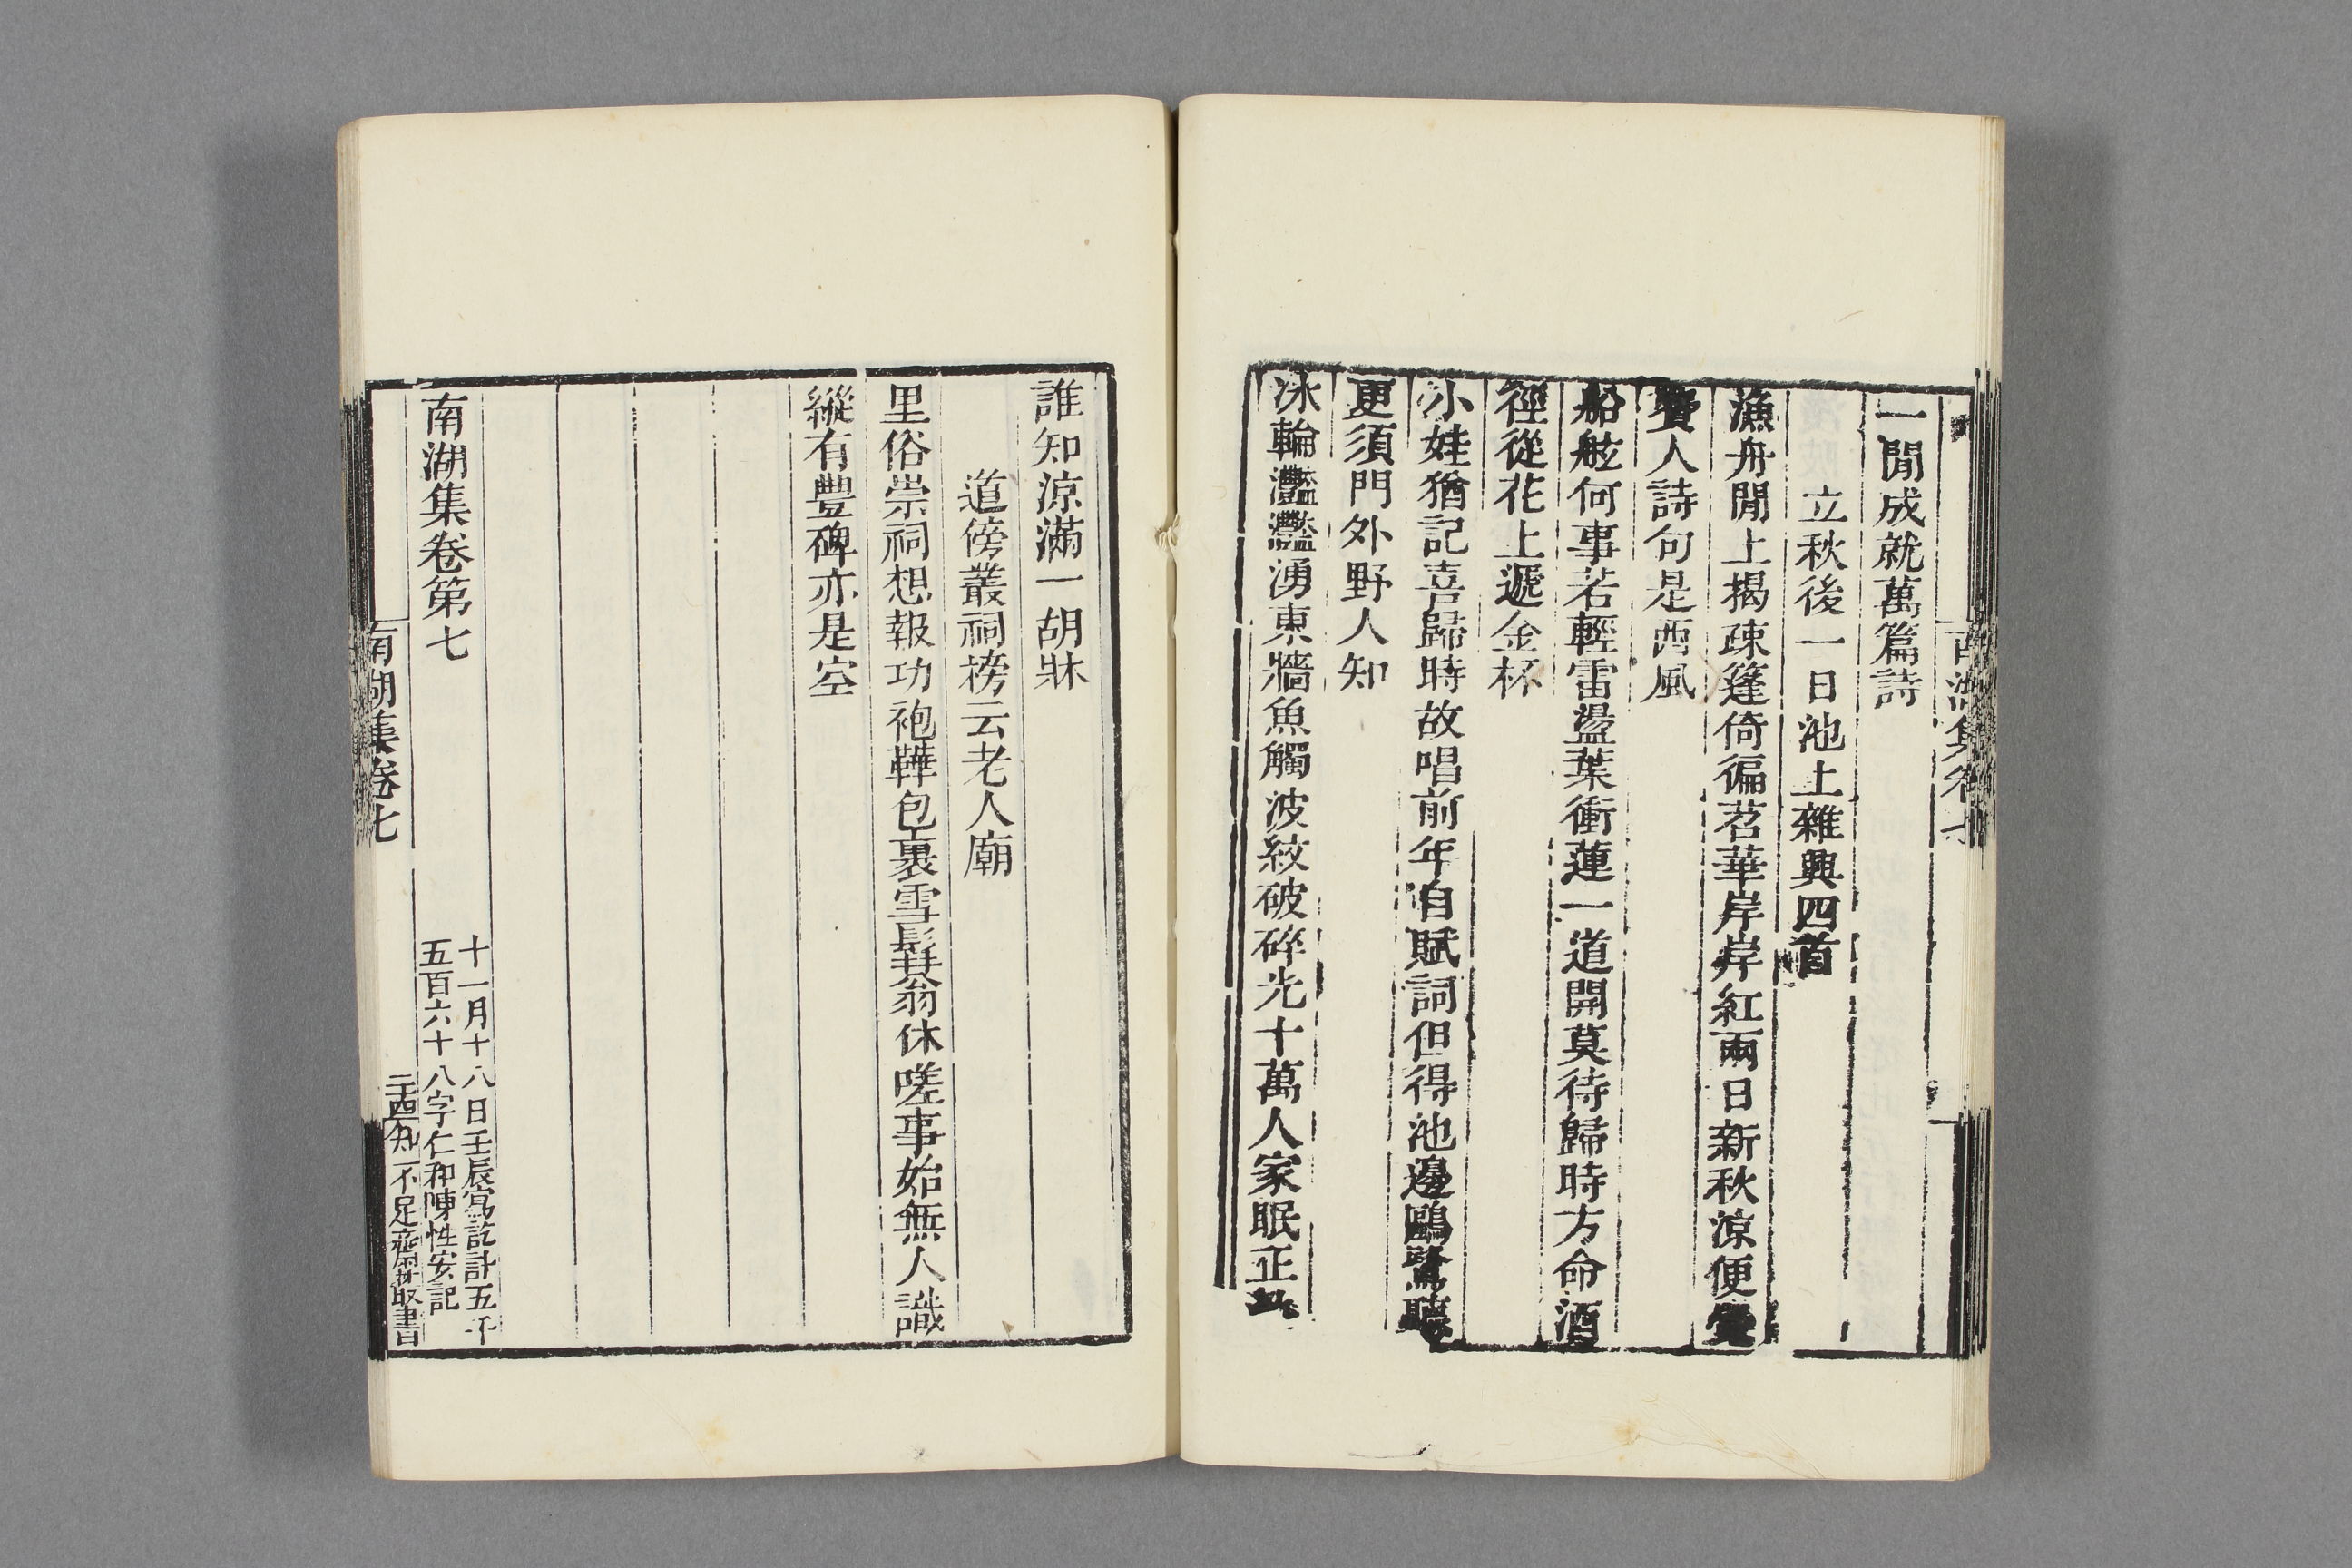 一閒成就萬篇詩
立秋後一日池上雜興四首
漁舟閒上揭疎篷倚徧茗華岸岸紅兩日新秋涼便覺
費人詩句是西風
船舷何事若輕雷盪葉衝蓮一道開莫待歸時方命酒
徑從花上遞金杯
小娃猶記喜歸時故唱前年自賦詞但得池邊鷗鷺聽
更須門外野人知
冰輪灩灩湧東牆魚觸波紋破碎光十萬人家眠正
誰知涼滿一胡牀
道傍叢祠榜云老人廟
里俗崇祠想報功袍鞾包裹雪髯翁休嗟事始無人識
縱有豐碑亦是空
南湖集卷第七
十一月十八日壬辰寫訖計五千
五百六十八字仁和陳性安記
南湖集卷七
二十四 知不足齋叢書